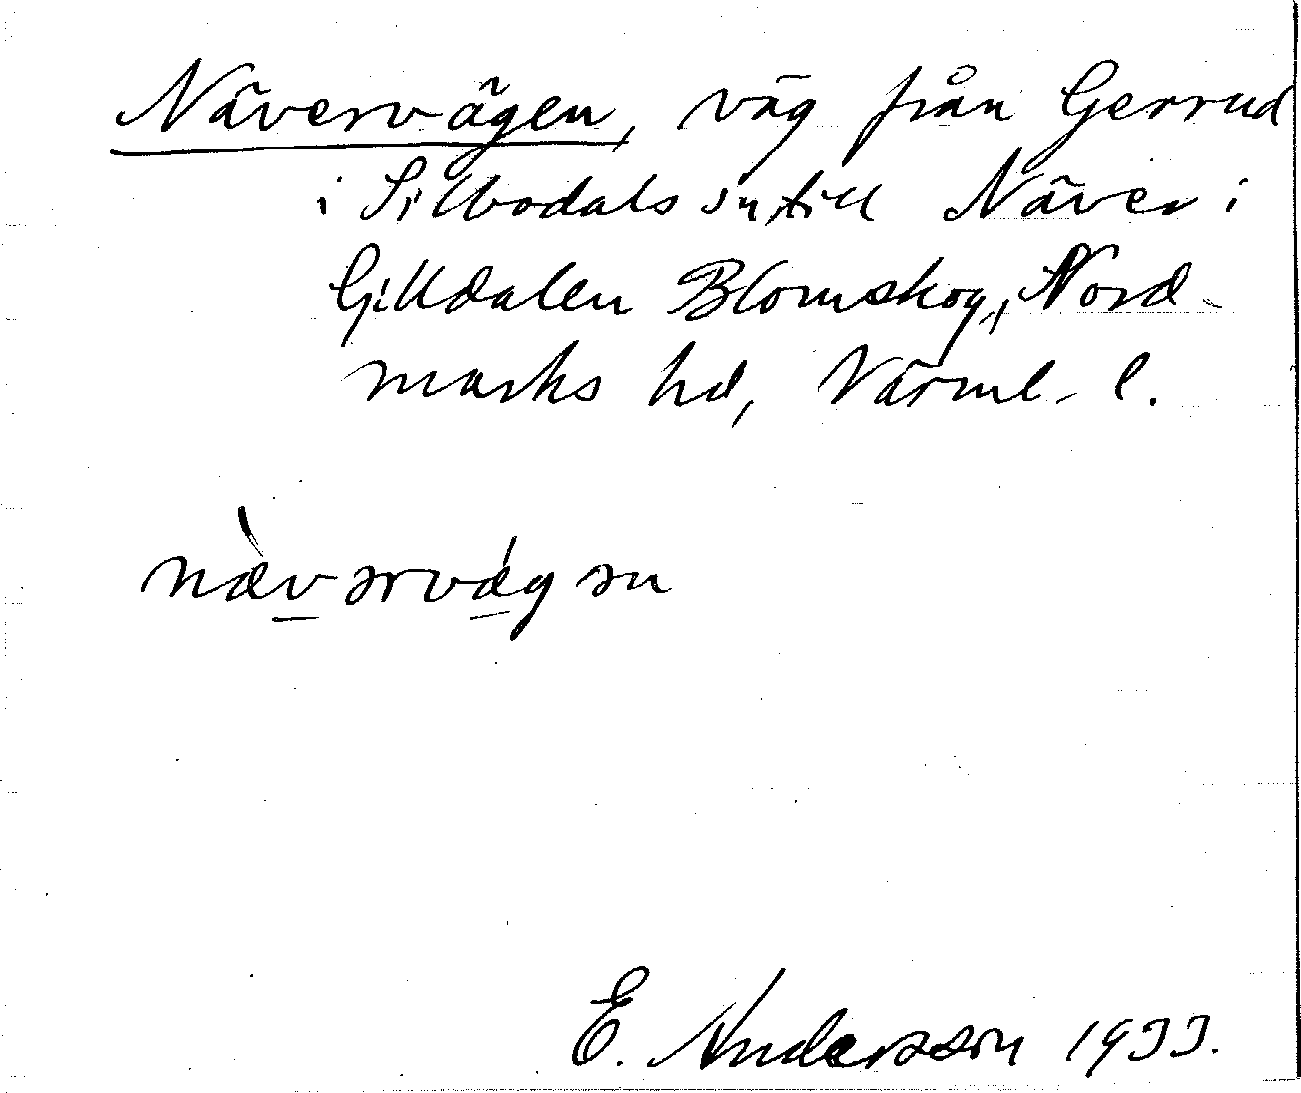 Nävervägen, väg från Gerrud
i Silbodals sn, till Näver i
Gilldalen Blomskog, Nord-
marks hd, Värml. l.
nævərvægən
E. Andersson 1933.